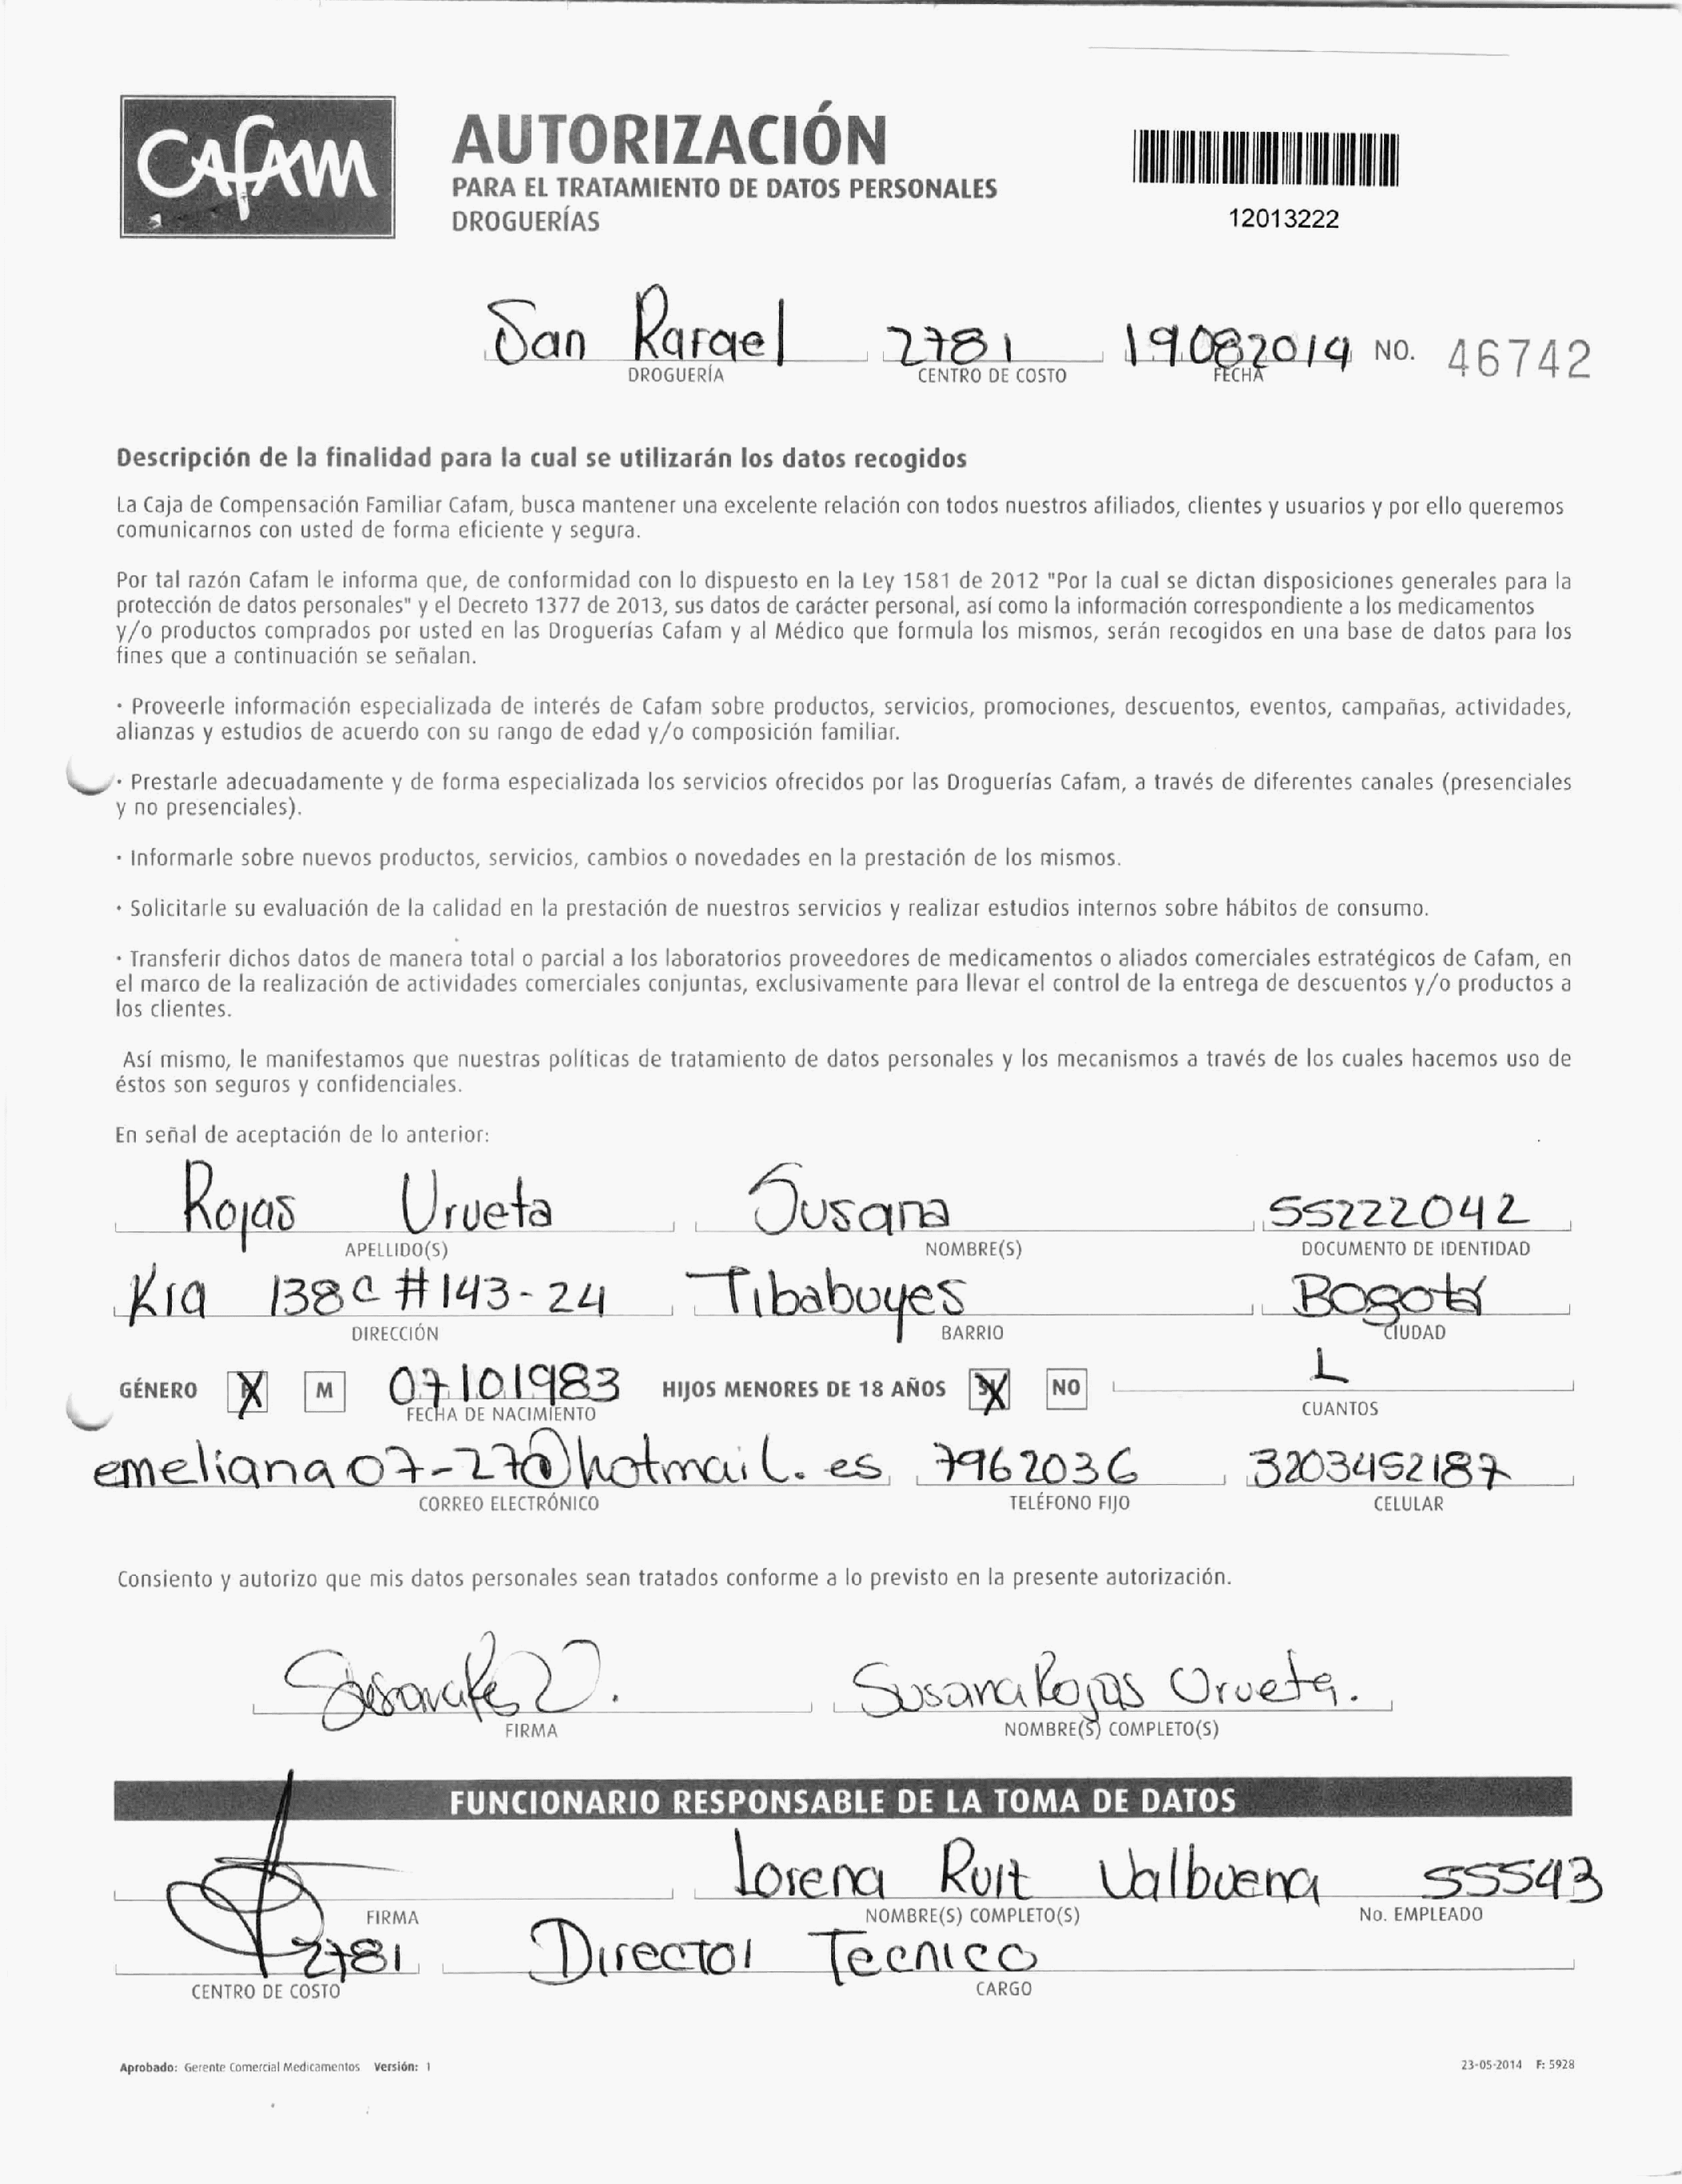 Cafam
AUTORIZACIÓN
PARA EL TRATAMIENTO DE DATOS PERSONALES
DROGUERÍAS
12013222
San Rafael 2781 19082014 NO. 46742
DROGUERÍA CENTRO DE COSTO FECHA
Descripción de la finalidad para la cual se utilizarán los datos recogidos
La Caja de Compensación Familiar Cafam, busca mantener una excelente relación con todos nuestros afiliados, clientes y usuarios y por ello queremos
comunicarnos con usted de forma eficiente y segura.
Por tal razón Cafam le informa que, de conformidad con lo dispuesto en la Ley 1581 de 2012 "Por la cual se dictan disposiciones generales para la
protección de datos personales" y el Decreto 1377 de 2013, sus datos de carácter personal, así como la información correspondiente a los medicamentos
y/o productos comprados por usted en las Droguerías Cafam y al Médico que formula los mismos, serán recogidos en una base de datos para los
fines que a continuación se señalan.
· Proveerle información especializada de interés de Cafam sobre productos, servicios, promociones, descuentos, eventos, campañas, actividades,
alianzas y estudios de acuerdo con su rango de edad y/o composición familiar.
· Prestarle adecuadamente y de forma especializada los servicios ofrecidos por las Droguerías Cafam, a través de diferentes canales (presenciales
y no presenciales).
· Informarle sobre nuevos productos, servicios, cambios o novedades en la prestación de los mismos.
· Solicitarle su evaluación de la calidad en la prestación de nuestros servicios y realizar estudios internos sobre hábitos de consumo.
· Transferir dichos datos de manera total o parcial a los laboratorios proveedores de medicamentos o aliados comerciales estratégicos de Cafam, en
el marco de la realización de actividades comerciales conjuntas, exclusivamente para llevar el control de la entrega de descuentos y/o productos a
los clientes.
Así mismo, le manifestamos que nuestras políticas de tratamiento de datos personales y los mecanismos a través de los cuales hacemos uso de
éstos son seguros y confidenciales.
En señal de aceptación de lo anterior:
Rojas Urueta Susana 55222042
APELLIDO(S) NOMBRE(S) DOCUMENTO DE IDENTIDAD
Kra 138C #143-24 Tibabuyes Bogotá
DIRECCIÓN BARRIO CIUDAD
GÉNERO X M 07101983 HIJOS MENORES DE 18 AÑOS X NO 1
FECHA DE NACIMIENTO CUANTOS
emeliana07-27@hotmail.es 7962036 3203452187
CORREO ELECTRÓNICO TELÉFONO FIJO CELULAR
Consiento y autorizo que mis datos personales sean tratados conforme a lo previsto en la presente autorización.
Susana Rojas Urueta.
FIRMA NOMBRE(S) COMPLETO(S)
FUNCIONARIO RESPONSABLE DE LA TOMA DE DATOS
Lorena Ruiz Valbuena 55543
FIRMA NOMBRE(S) COMPLETO(S) No. EMPLEADO
2781 Director Tecnico
CENTRO DE COSTO CARGO
Aprobado: Gerente Comercial Medicamentos Versión: 1 23-05-2014 F: 5928